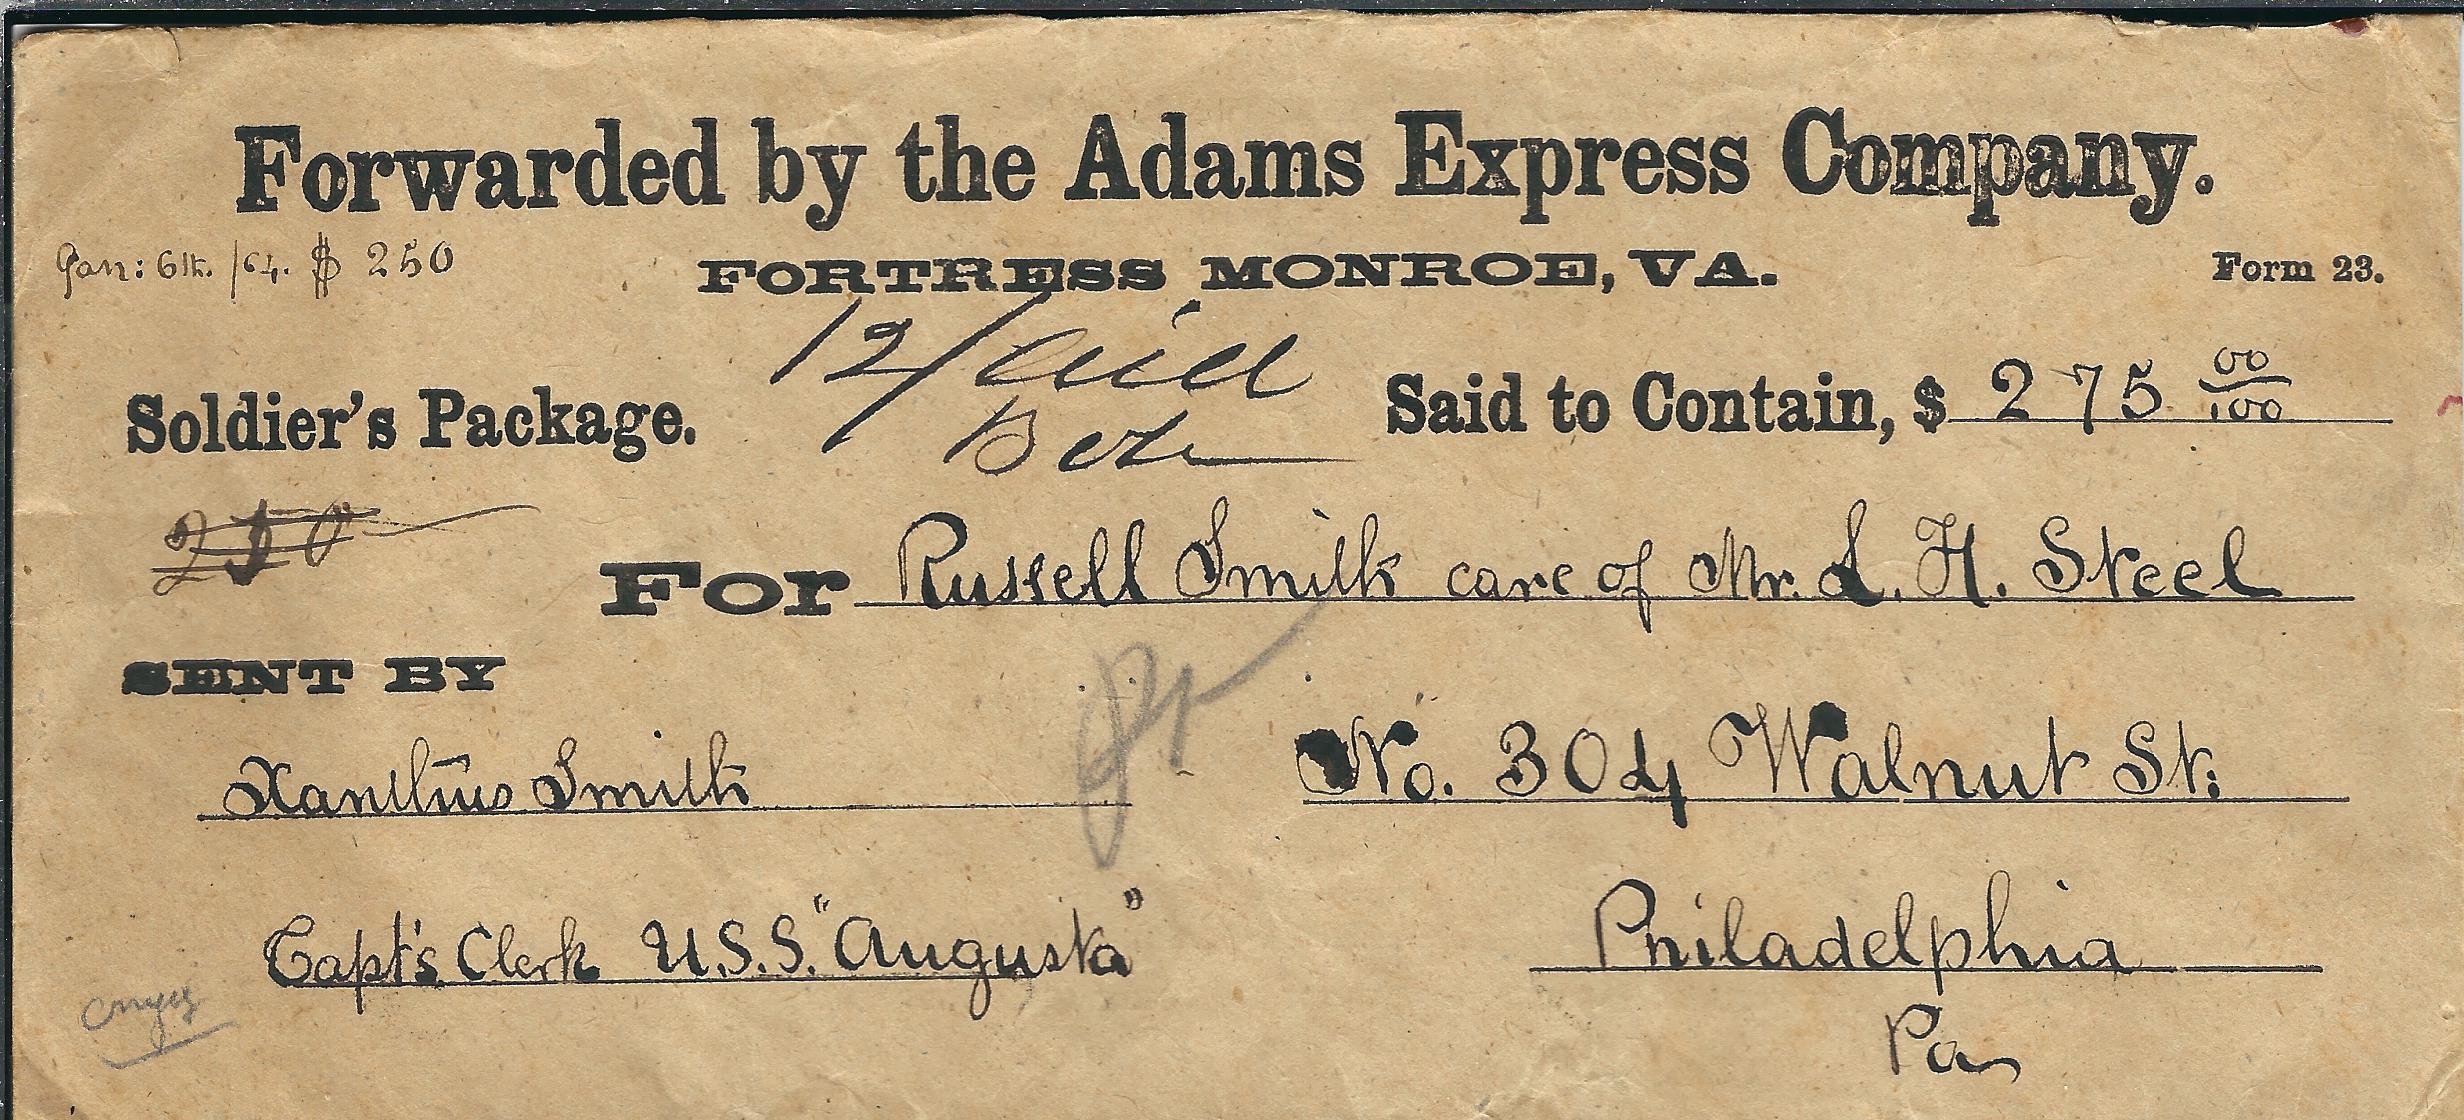 Forwarded by the Adams Express Company.
Jan: 6th. /64. $ 250
FORTRESS MONROE, VA.
Form 23.
12/
Soldier's Package.
Said to Contain, $ 275 00/100
250
For Russell Smith care of Mr. L. H. Steel
SENT BY
Xanthus Smith
No. 304 Walnut St:
Capt's Clerk U.S.S. "Augusta"
Philadelphia
Pa